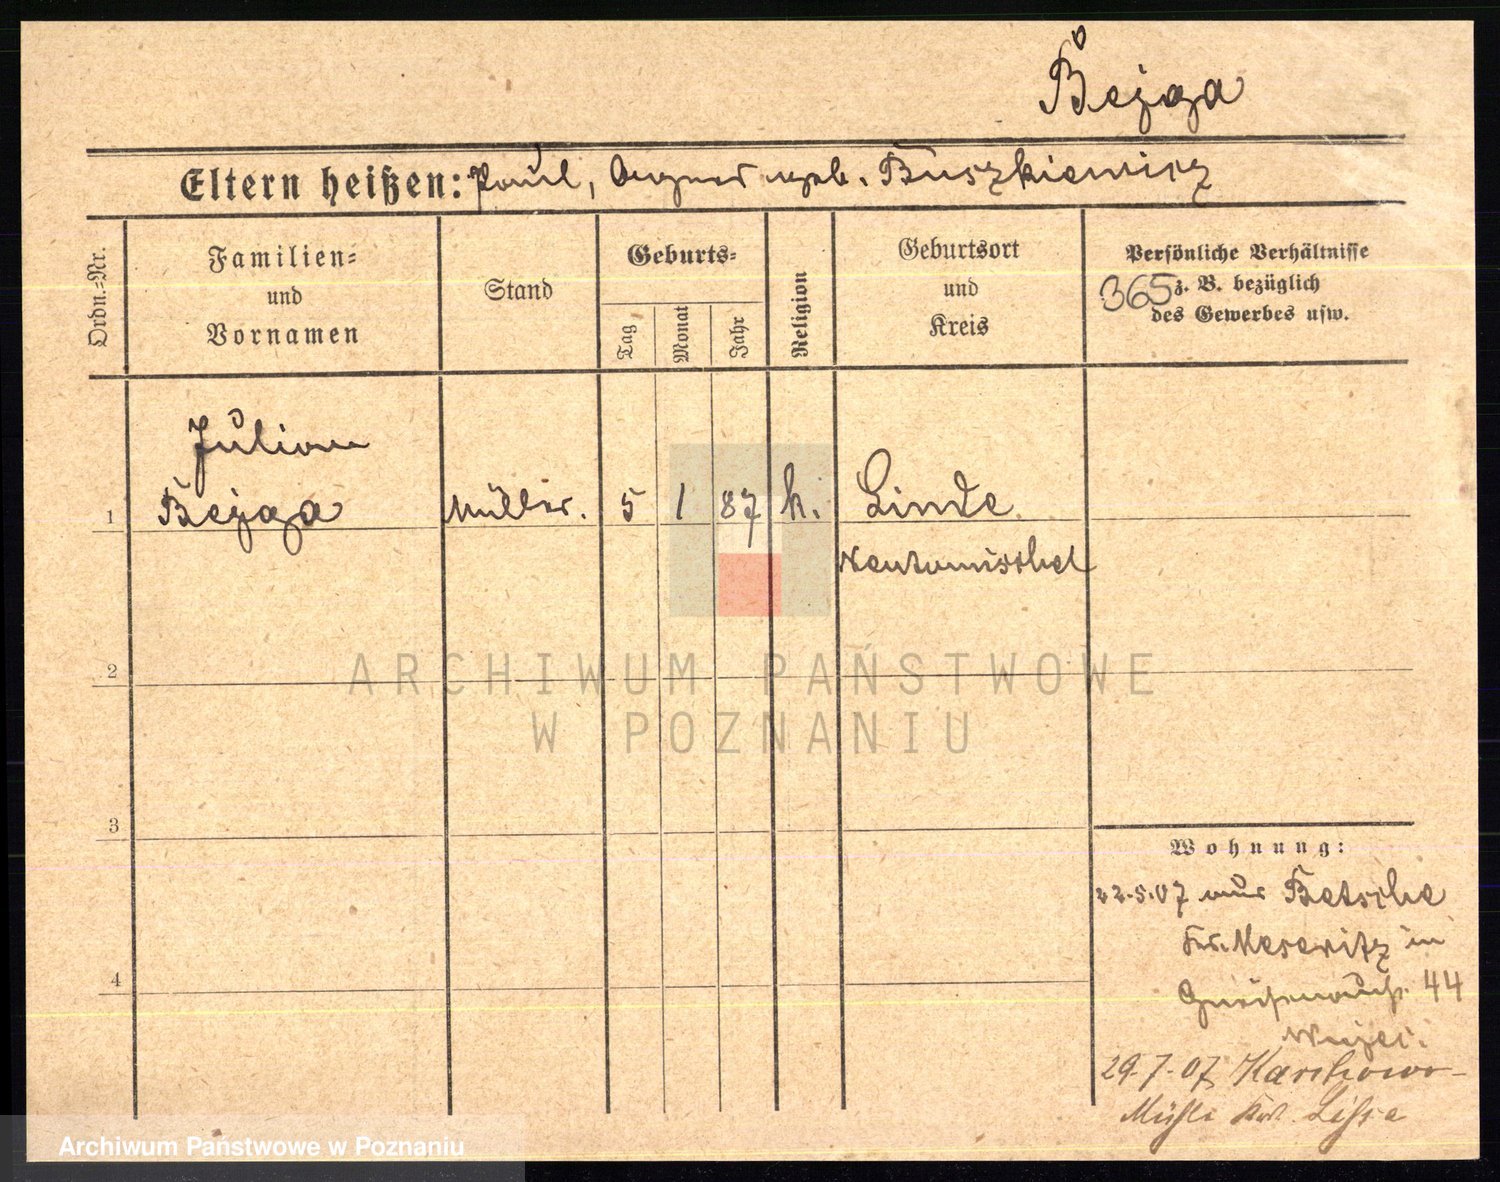 Bejga
Eltern heißen: Paul, Agnes geb. Buszkiewicz
Ordn.=Nr.
Familien=
und
Vornamen
Stand
Geburts=
Tag
Monat
Jahr
Religion
Geburtsort
und
Kreis
Persönliche Verhältnisse
365 z. B. bezüglich
des Gewerbes usw.
Julian
1 Bejga Müller. 5 1 87 k. Linde
Neutomischel
2
3
4
Wohnung:
22.5.07 aus Betsche
Kr. Meseritz in
Gneisenaustr. 44
29.7.07 Karchowo-
Mühle Krs. Lissa
ARCHIWUM PAŃSTWOWE
W POZNANIU
Archiwum Państwowe w Poznaniu